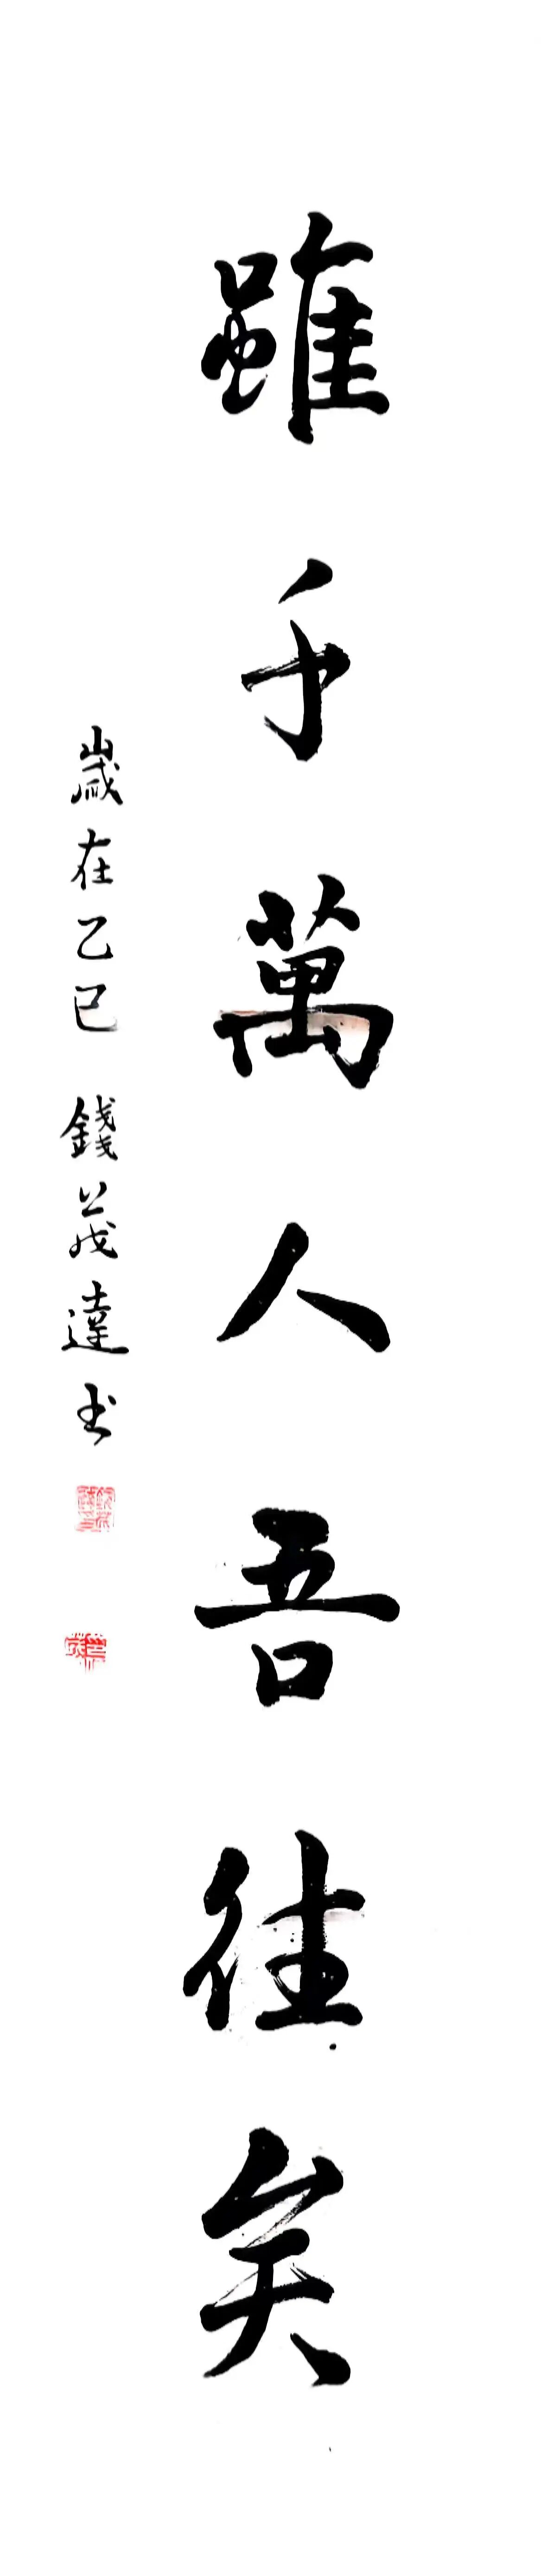 雖千萬人吾往矣
歲在乙巳 錢茂達书